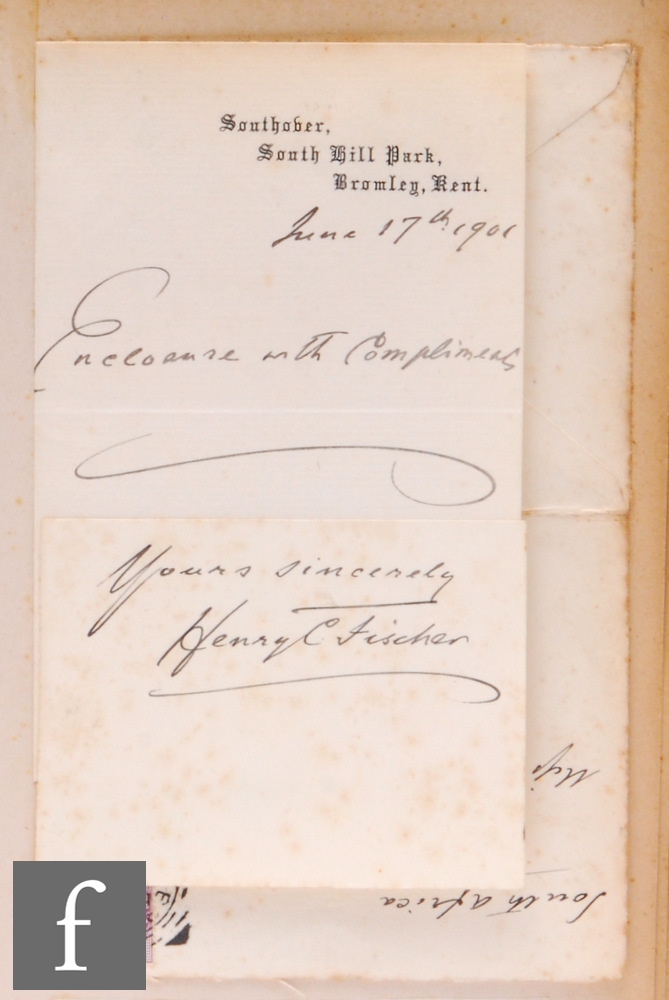 Southover,
South Hill Park,
Bromley, Kent.
June 17th 1901
Enclosure with Compliments
Yours sincerely
Henry C Fischer
South Africa
f